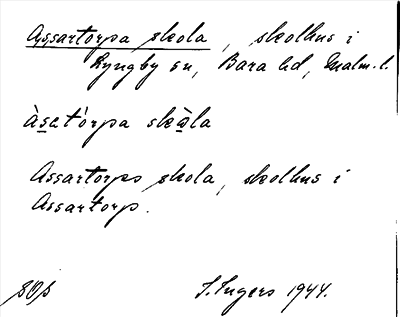 Assartorpa skola, skolhus i
Lyngby sn, Bara hd, Malm. l.
àsatórpa skòla
Assartorps skola, skolhus i
Assartorp.
SOs
I. Ingers 1944.